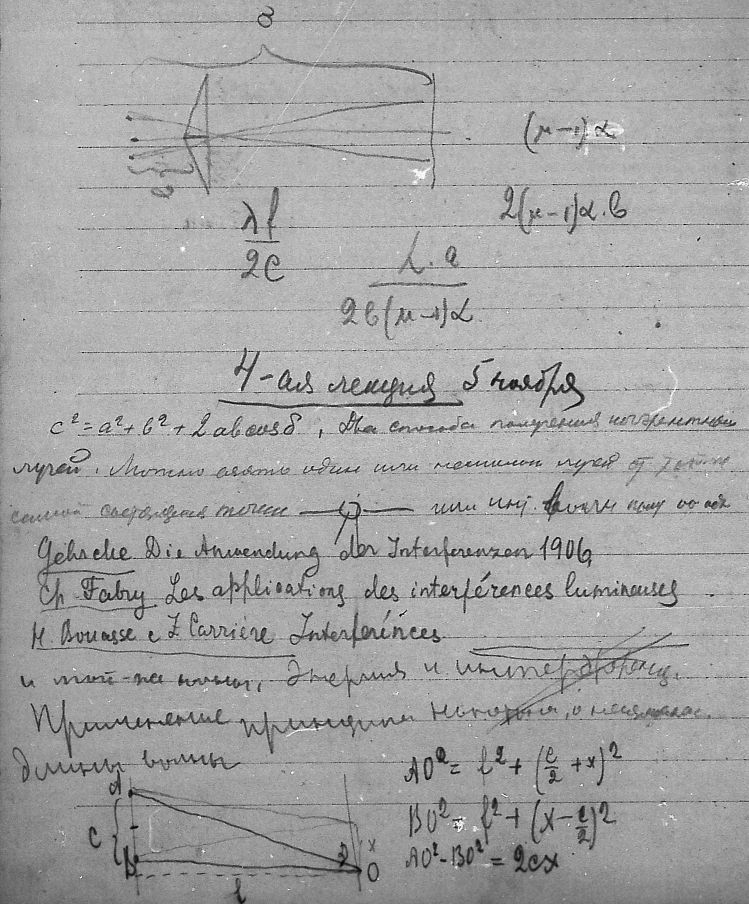 a
(μ-1)α
2(μ-1)α.b
λf
2c
L.a
2b(μ-1)α
4-ая лекция 5 ноября
c²=a²+b²+2ab cosδ, Два способа получения когерентных
лучей. Можно взять один или
точки или
Gehrcke Die Anwendung der Interferenzen 1906
Ch Fabry Les applications des interférences lumineuses
H. Bouasse e Z Carrière Interférences
и той-же волны, Энергия и интерференц.
Применение принципа
длины волны
A
AO² = l² + (c/2 + x)²
C
BO² = l² + (x - c/2)²
B
x
O
AO²-BO² = 2cx
l